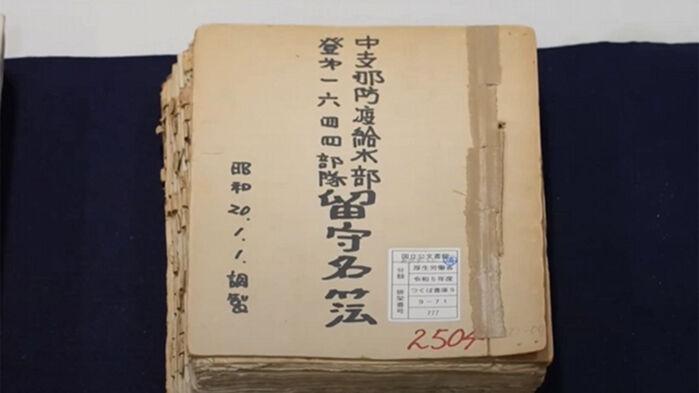 中支那防疫給水部
登第一六四四部隊
留守名簿
昭和20.1.1.調製
国立公文書館
分類
厚生労働省
令和5年度
つくば書庫5
排架番号
9-71
777
2504